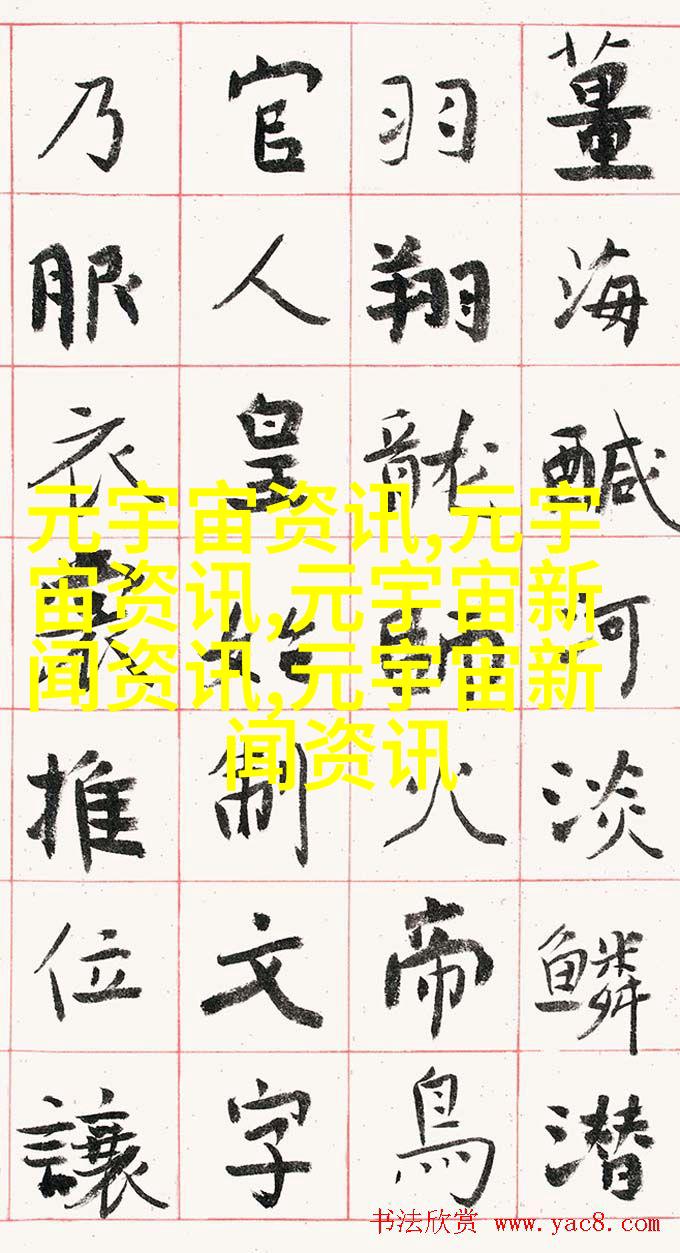 薑海鹹河淡鳞潜
羽翔龍師火帝鳥
官人皇始制文字
乃服衣裳推位讓
元宇宙资讯,元宇
宙资讯,元宇宙新
闻资讯,元宇宙新
闻资讯
书法欣赏 www.yac8.com